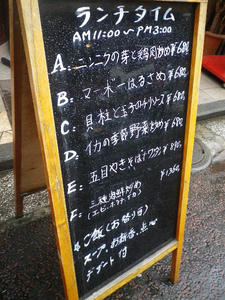 ランチタイム
AM11:00〜PM3:00
A. ニンニクの芽と鶏肉炒め ¥680
B: マーボーはるさめ ¥680
C: 貝柱と玉子のチリソース ¥680
D: イカの季節野菜炒め ¥680
E: 五目やきそば
F: 三種海鮮炒め ¥1,360
(エビ、ホタテ、イカ)
ご飯(お替り自)
スープ、お新香、点心
デザート付